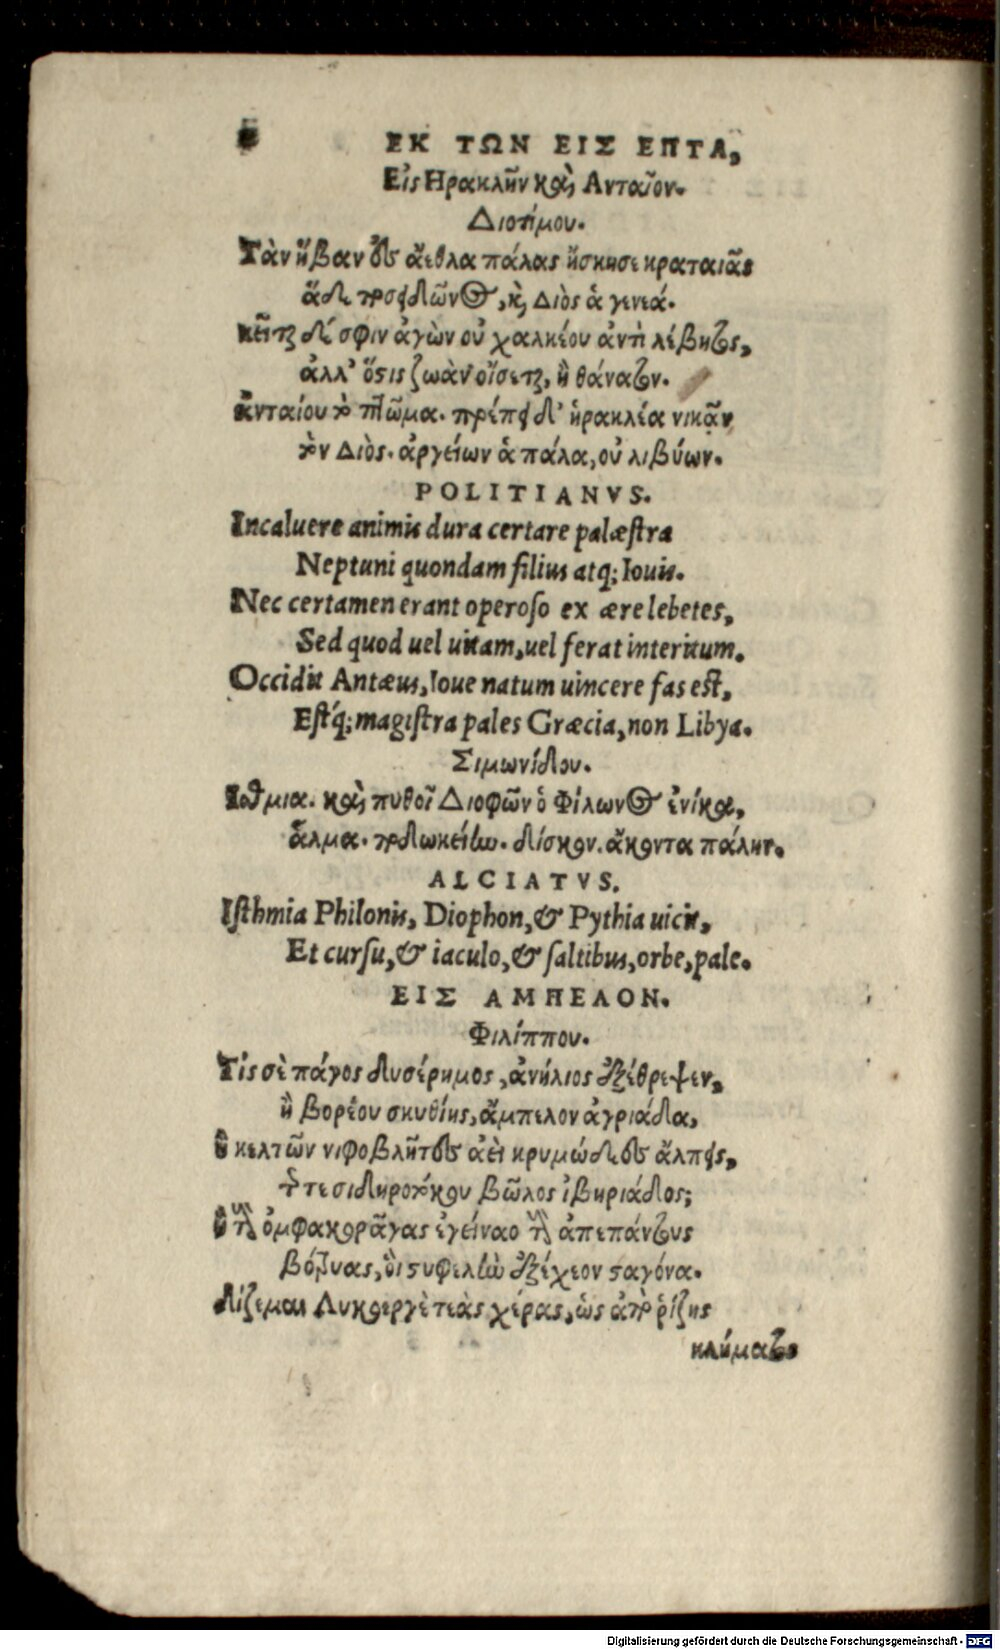 ΕΚ ΤΩΝ ΕΙΣ ΕΠΤΑ,
Εἰς Ηρακλῆν καὶ Ανταῖον.
Διοτίμου.
Τὰν ἥβαν ἐς ἄεθλα πάλας ἤσκησε κραταιᾶς
ἅδε ποσειδῶνος, κ̀ Διὸς ἁ γενεά.
κεῖται δέ σφιν ἀγὼν οὐ χαλκέου ἀντὶ λέβητος,
ἀλλ' ὅστις ζωὰν οἴσεται, ἢ θάνατον.
ἀνταίου τὸ πτῶμα. πρέπει δ' ἡρακλέα νικᾶν
τὸν Διὸς. ἀργείων ἁ πάλα, οὐ λιβύων.
POLITIANVS.
Incaluere animis dura certare palæstra
Neptuni quondam filius atq; Iouis.
Nec certamen erant operoso ex ære lebetes,
Sed quod uel uitam, uel ferat interitum.
Occidit Antæus, Ioue natum uincere fas est,
Estq́; magistra pales Græcia, non Libya.
Σιμωνίδου.
Ισθμια. καὶ πυθοῖ Διοφῶν ὁ Φίλωνος ἐνίκα,
ἅλμα. ποδωκείην. δίσκον. ἄκοντα πάλην.
ALCIATVS.
Isthmia Philonis, Diophon, & Pythia uicit,
Et cursu, & iaculo, & saltibus, orbe, pale.
ΕΙΣ ΑΜΠΕΛΟΝ.
Φιλίππου.
Τίς σὲ πάγος δυσέρημος, ἀνήλιος ἐξέθρεψεν,
ἢ βορέου σκυθίης, ἄμπελον ἀγριάδα,
ἢ κελτῶν νιφοβλῆτες ἀεὶ κρυμώδεες ἄλπεις,
τῆς τε σιδηροτόκου βῶλος ἰβηριάδος;
ἢ τοὺς ὀμφακορᾶγας ἐγείναο τοὺς ἀπεπάντους
βότρυας, οἳ στυφελὴν ἐξέχεον σταγόνα.
δίζεμαι Λυκόεργὲ τεὰς χέρας, ὡς ἀπὸ ῥίζης
κλήματος
Digitalisierung gefördert durch die Deutsche Forschungsgemeinschaft - DFG